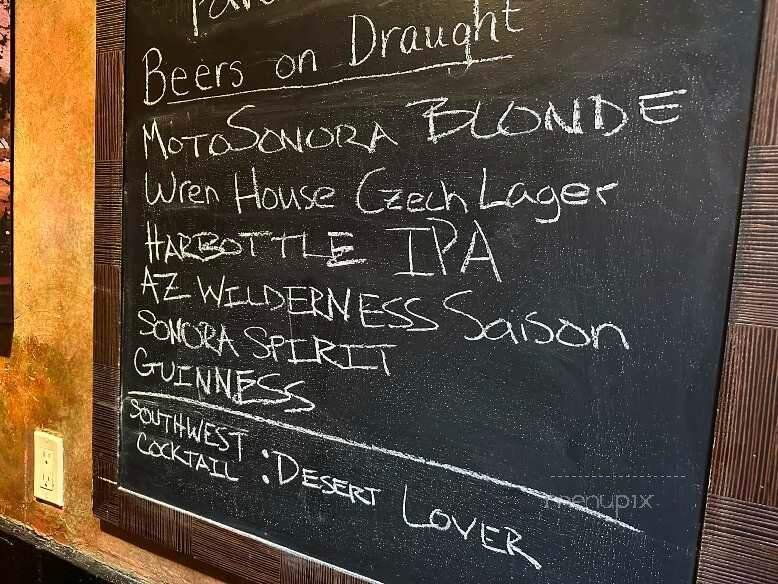 Beers on Draught
MOTOSONORA BLONDE
Wren House Czech Lager
HARBOTTLE IPA
AZ WILDERNESS Saison
SONORA SPIRIT
GUINNESS
SOUTHWEST
COCKTAIL : DESERT LOVER
menupix